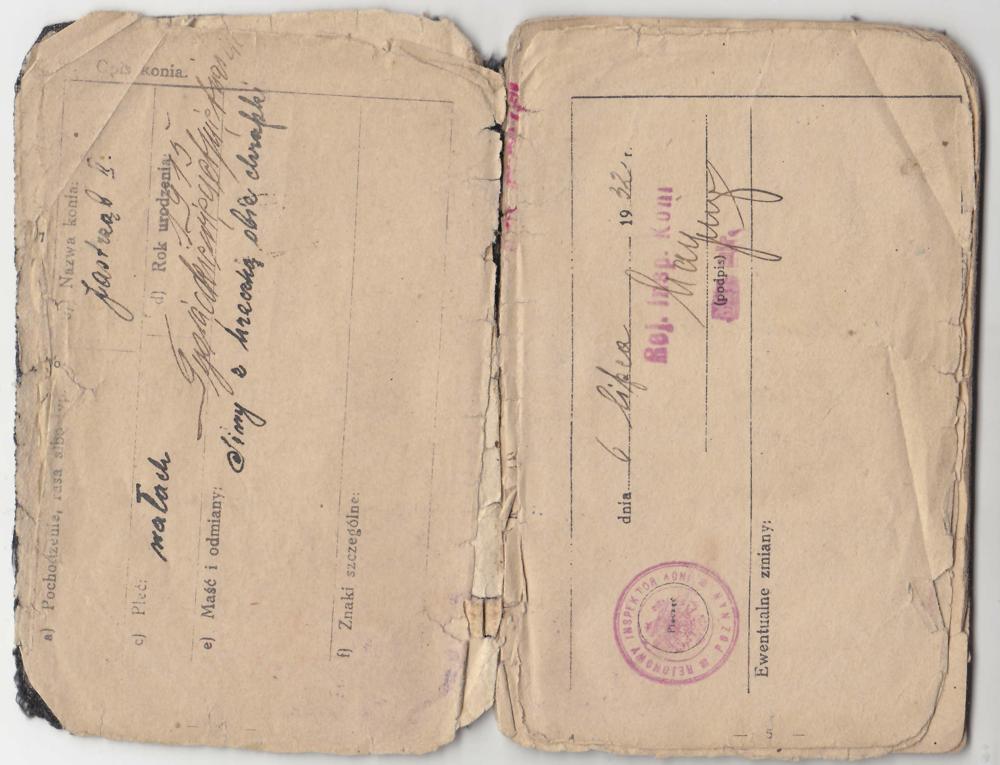 Opis konia.
a) Pochodzenie, rasa albo typ.
b) Nazwa konia:
Jastrząb II.
c) Płeć:
wałach
d) Rok urodzenia:
e) Maść i odmiany:
Siwy z hreczką obie chrapki
f) Znaki szczególne:
dnia 6 lipca 1932 r.
Rej. Insp. Koni
(podpis)
REJONOWY INSPEKTOR KONI
Pieczęć
Ewentualne zmiany:
— 5 —